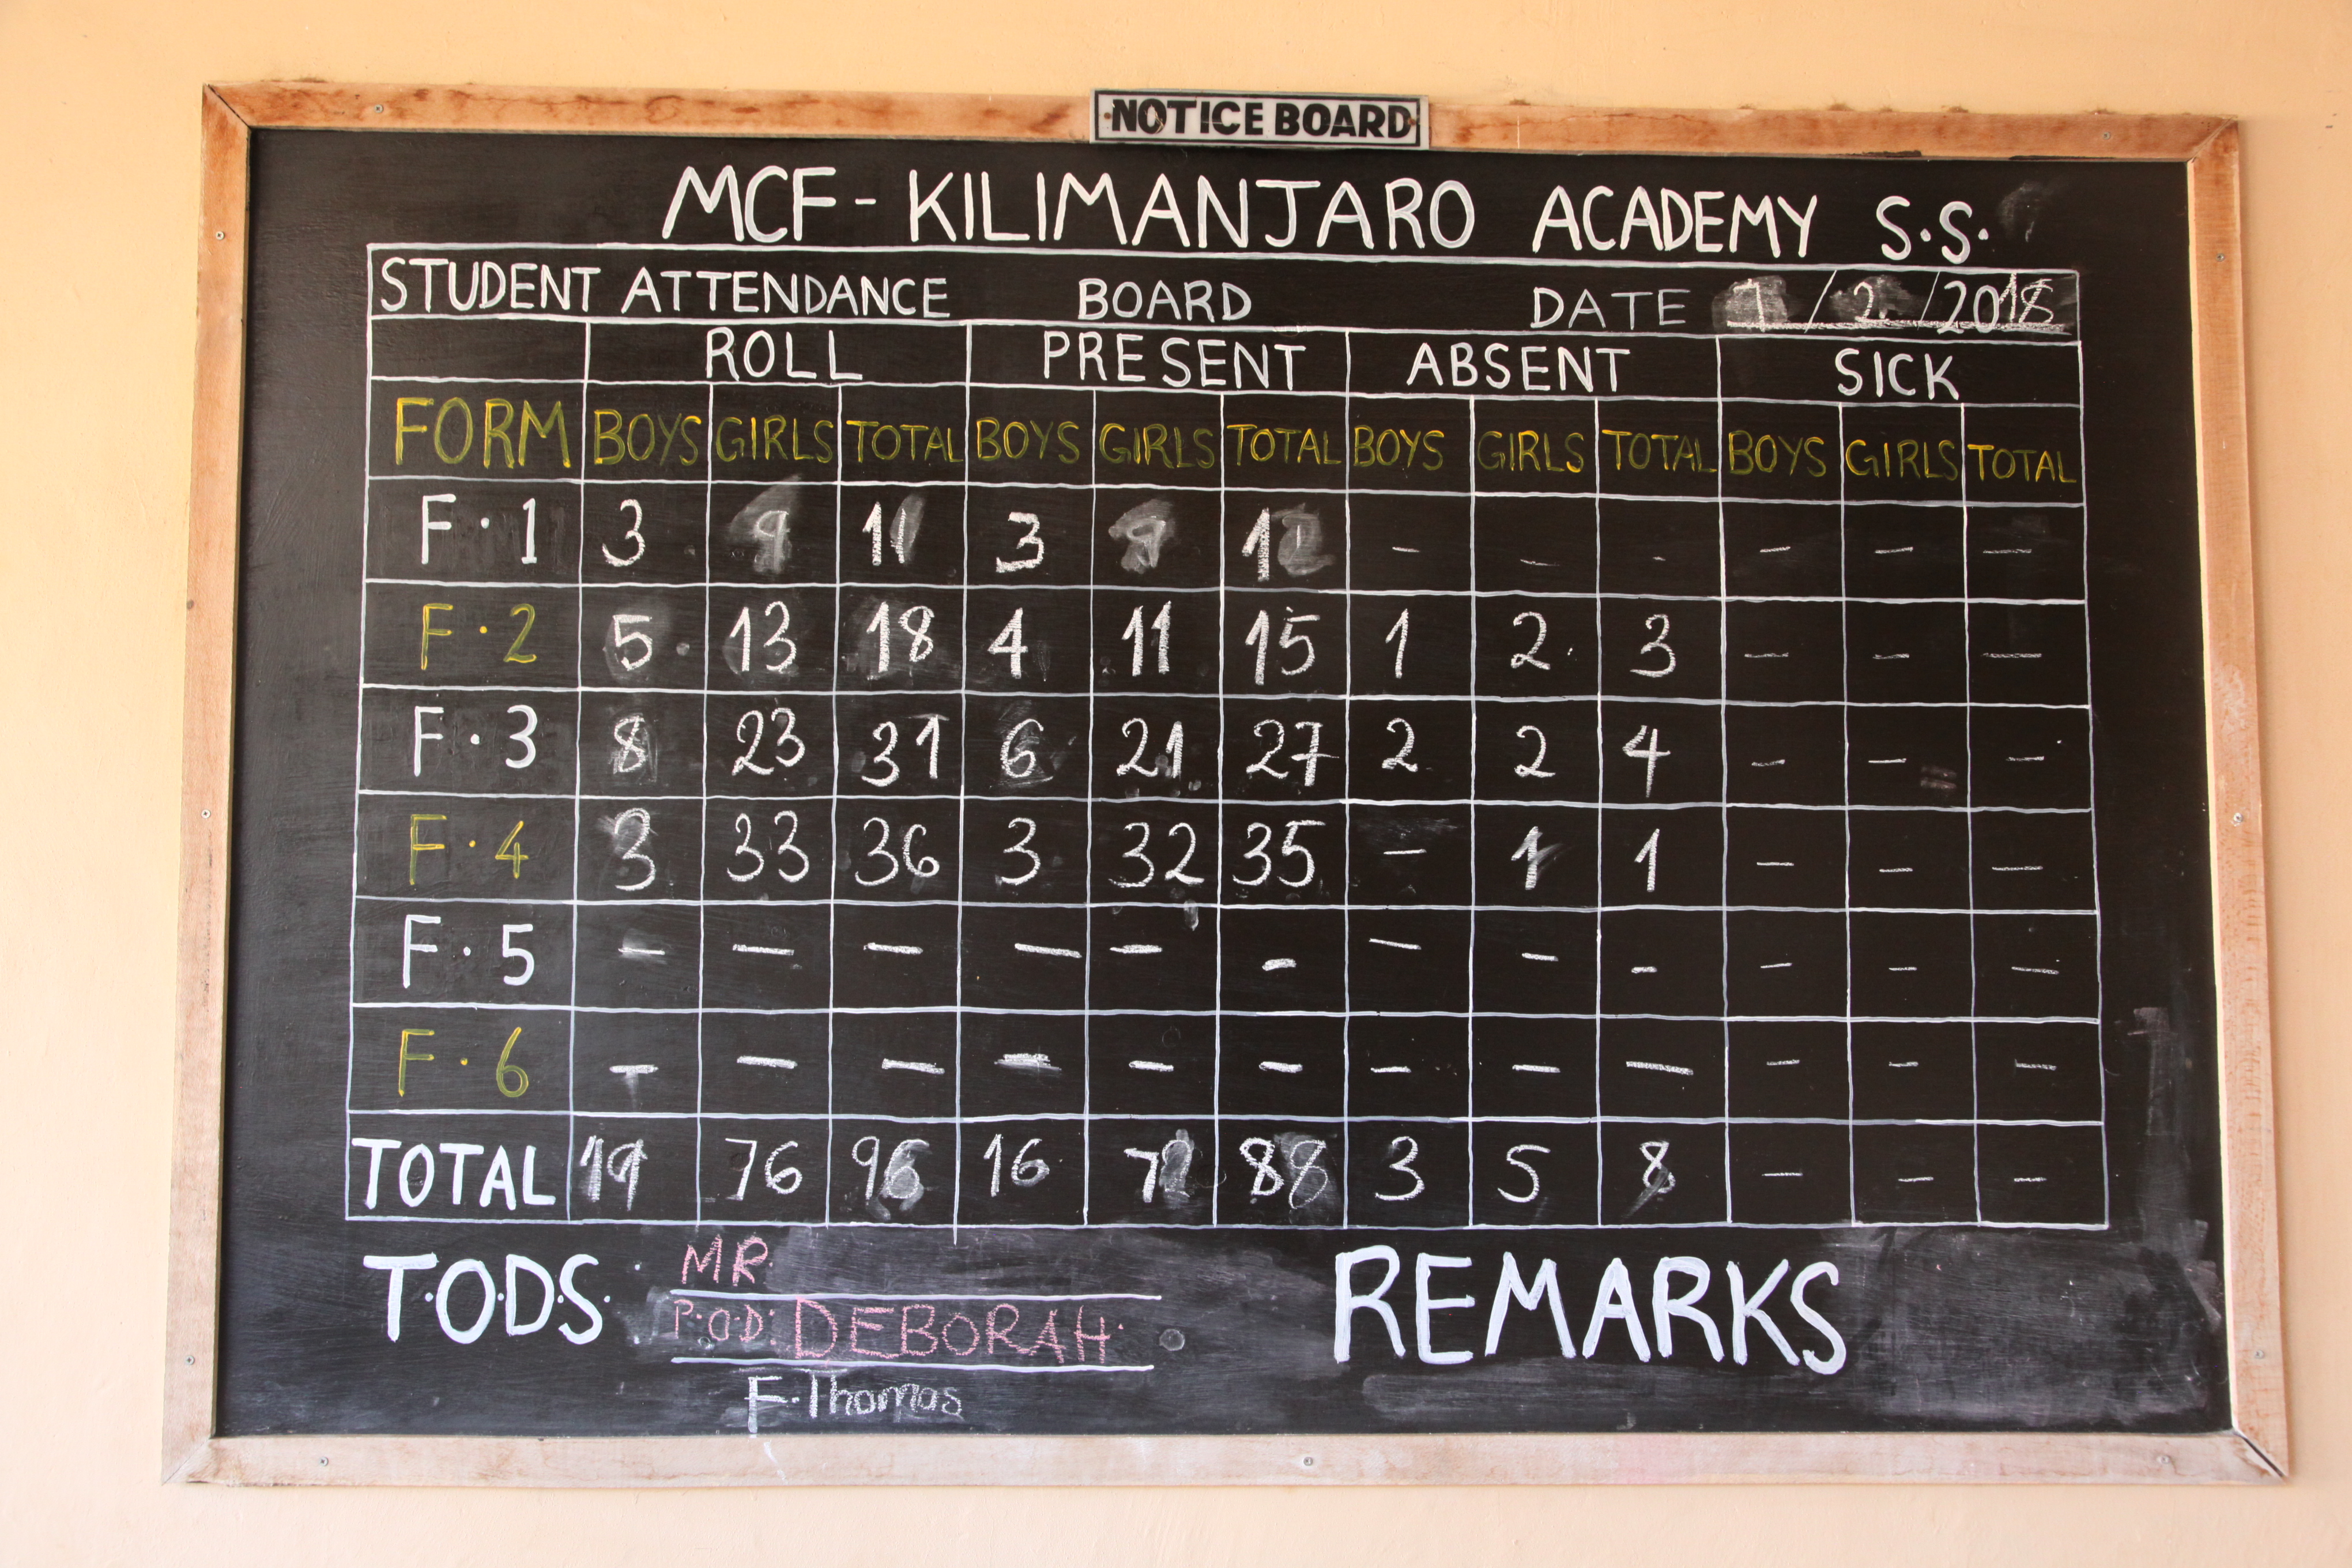 NOTICE BOARD
MCF - KILIMANJARO ACADEMY S.S.
STUDENT ATTENDANCE BOARD DATE 7/2/2018
ROLL PRESENT ABSENT SICK
FORM BOYS GIRLS TOTAL BOYS GIRLS TOTAL BOYS GIRLS TOTAL BOYS GIRLS TOTAL
F.1 3 9 11 3 9 - - - - - -
F.2 5 13 18 4 11 15 1 2 3 - - -
F.3 8 23 31 6 21 27 2 2 4 - - -
F.4 3 33 36 3 32 35 - 1 1 - - -
F.5 - - - - - - - - - - - -
F.6 - - - - - - - - - - - -
TOTAL 19 76 96 16 72 88 3 5 8 - - -
T.O.D.S. MR. REMARKS
P.O.D: DEBORAH.
F. Thomas